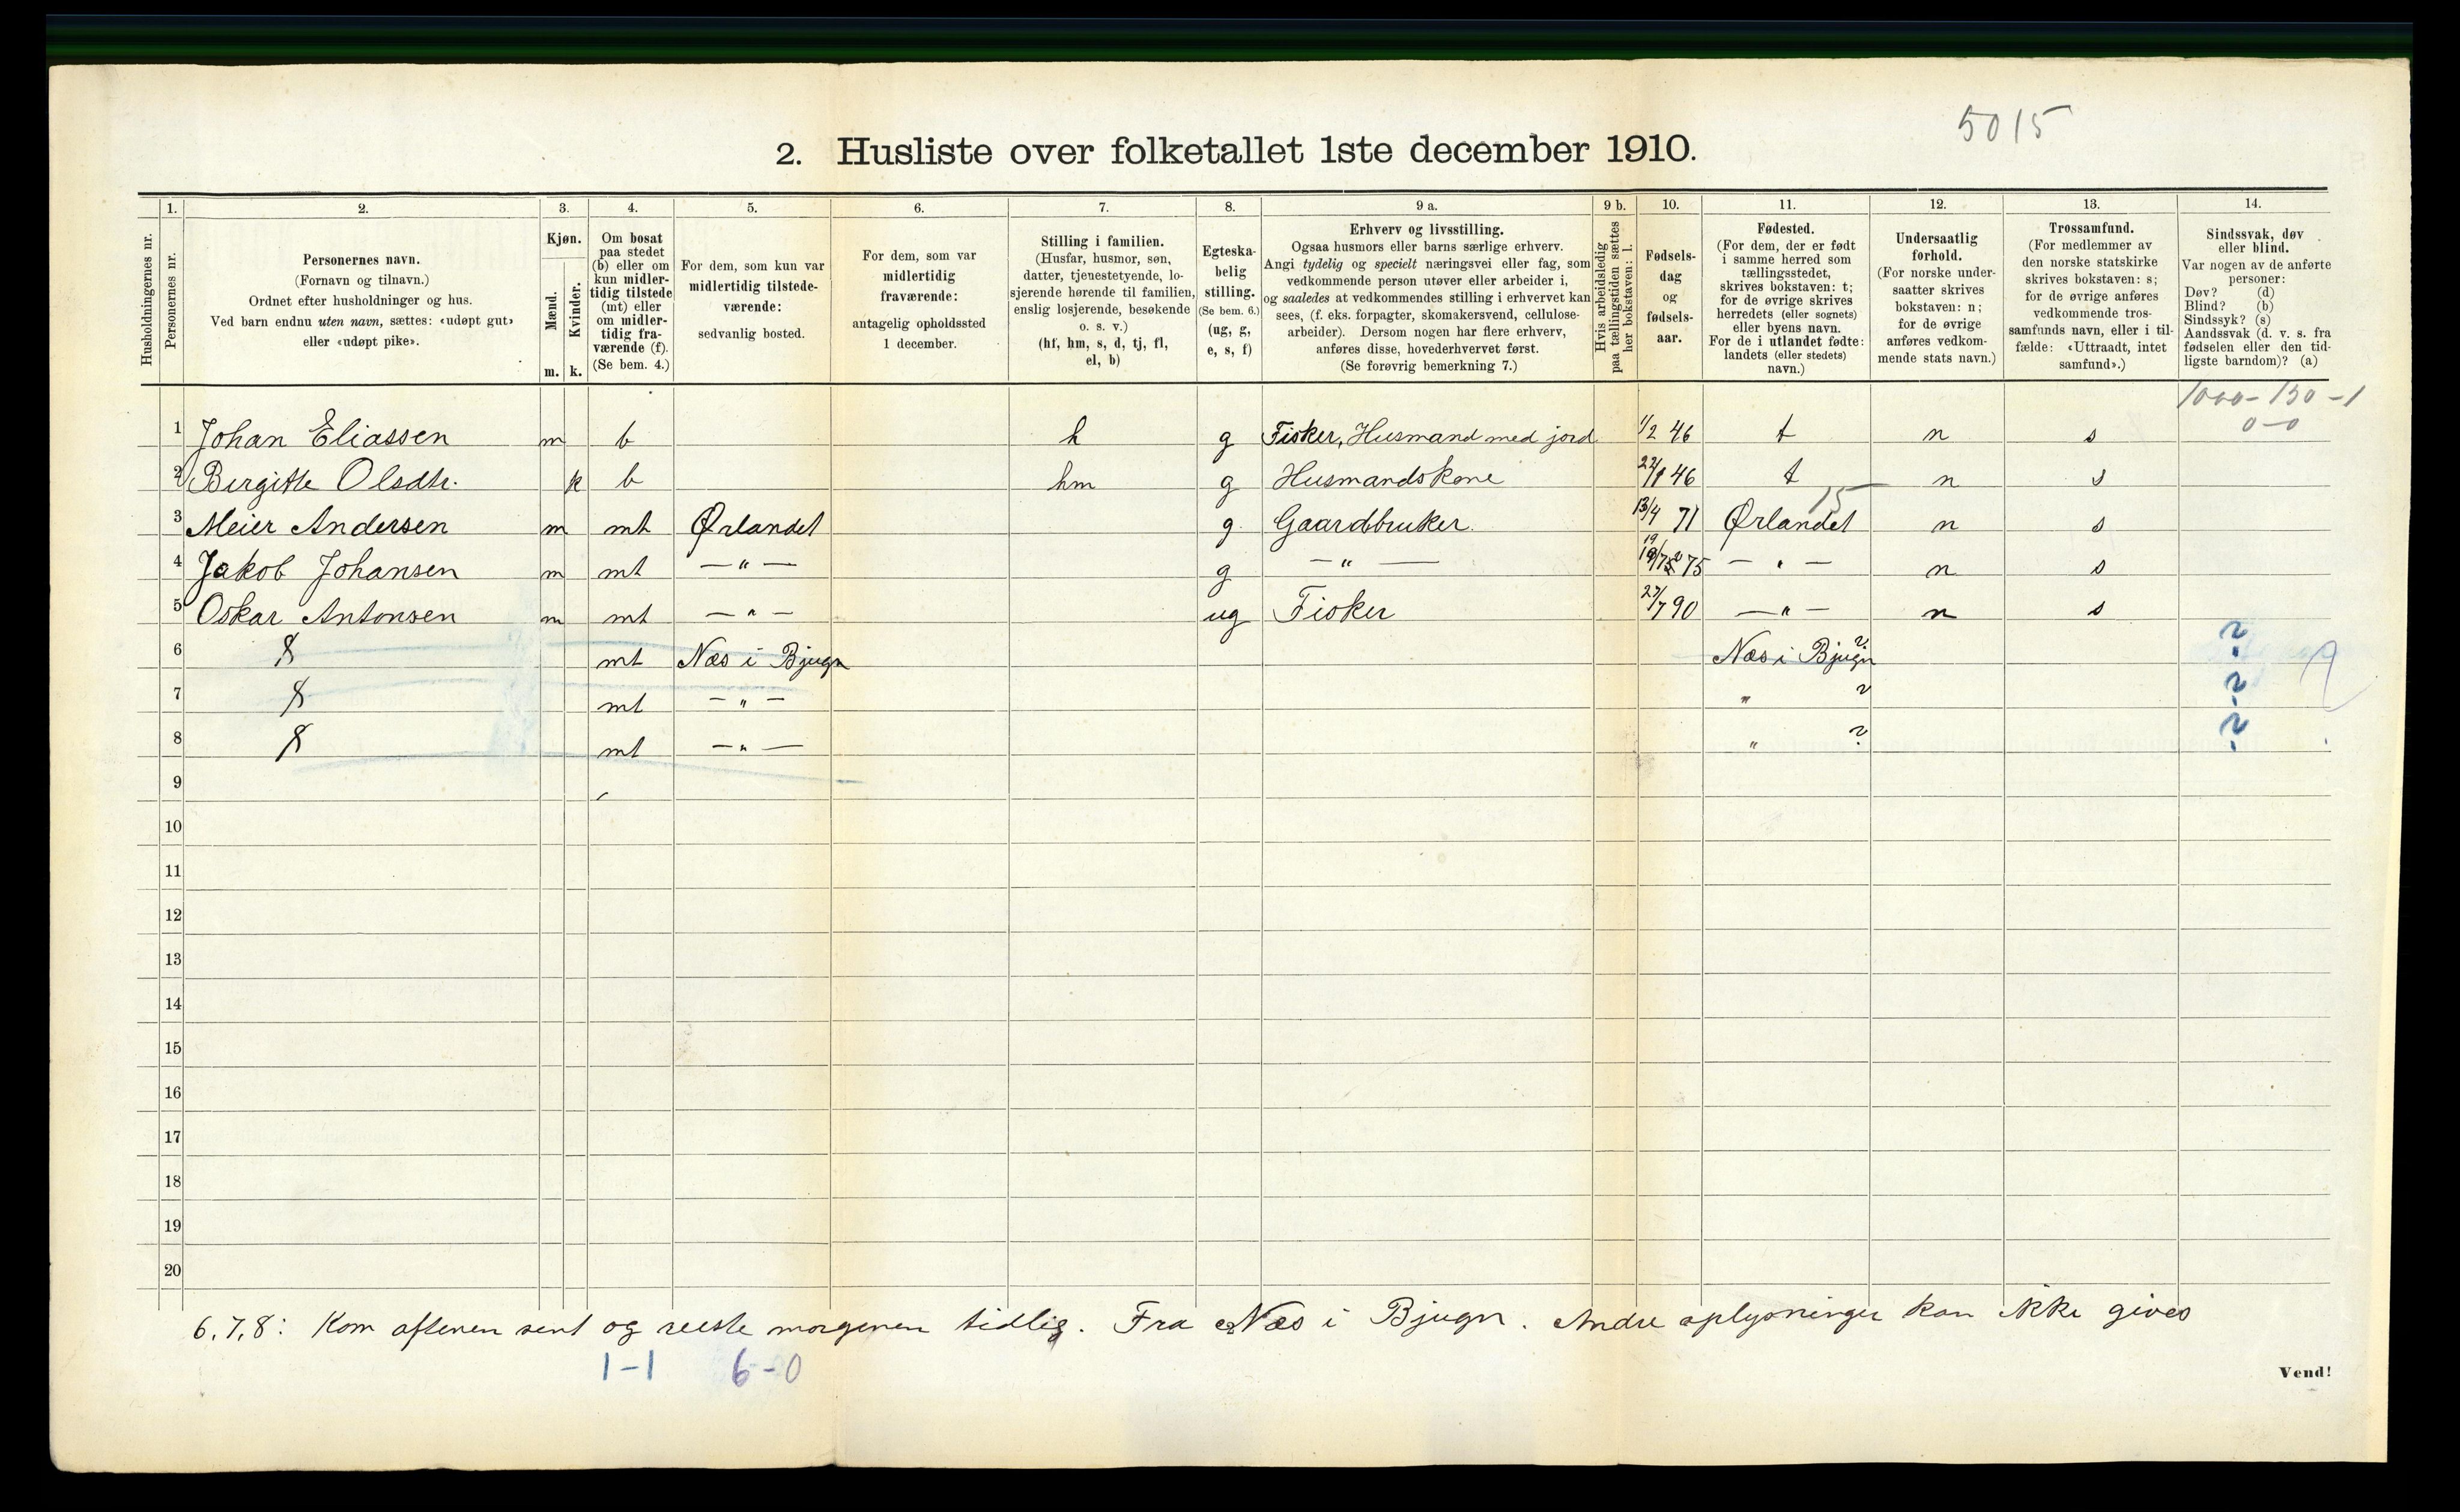 5015
2. Husliste over folketallet 1ste december 1910.
Husholdningernes nr.
1. Personernes nr.
2. Personernes navn.
(Fornavn og tilnavn.)
Ordnet efter husholdninger og hus.
Ved barn endnu uten navn, sættes: «udøpt gut»
eller «udøpt pike».
3. Kjøn.
Mænd. Kvinder.
m. k.
4. Om bosat
paa stedet
(b) eller om
kun midler-
tidig tilstede
(mt) eller
om midler-
tidig fra-
værende (f).
(Se bem. 4.)
5. For dem, som kun var
midlertidig tilstede-
værende:
sedvanlig bosted.
6. For dem, som var
midlertidig
fraværende:
antagelig opholdssted
1 december.
7. Stilling i familien.
(Husfar, husmor, søn,
datter, tjenestetyende, lo-
sjerende hørende til familien,
enslig losjerende, besøkende
o. s. v.)
(hf, hm, s, d, tj, fl,
el, b)
8. Egteska-
belig
stilling.
(Se bem. 6.)
(ug, g,
e, s, f)
9 a. Erhverv og livsstilling.
Ogsaa husmors eller barns særlige erhverv.
Angi tydelig og specielt næringsvei eller fag, som
vedkommende person utøver eller arbeider i,
og saaledes at vedkommendes stilling i erhvervet kan
sees, (f. eks. forpagter, skomakersvend, cellulose-
arbeider). Dersom nogen har flere erhverv,
anføres disse, hovederhvervet først.
(Se forøvrig bemerkning 7.)
9 b. Hvis arbeidsledig
paa tællingstiden sættes
her bokstaven: l.
10. Fødsels-
dag
og
fødsels-
aar.
11. Fødested.
(For dem, der er født
i samme herred som
tællingsstedet,
skrives bokstaven: t;
for de øvrige skrives
herredets (eller sognets)
eller byens navn.
For de i utlandet fødte:
landets (eller stedets)
navn.)
12. Undersaatlig
forhold.
(For norske under-
saatter skrives
bokstaven: n;
for de øvrige
anføres vedkom-
mende stats navn.)
13. Trossamfund.
(For medlemmer av
den norske statskirke
skrives bokstaven: s;
for de øvrige anføres
vedkommende tros-
samfunds navn, eller i til-
fælde: «Uttraadt, intet
samfund».)
14. Sindssvak, døv
eller blind.
Var nogen av de anførte
personer:
Døv? (d)
Blind? (b)
Sindssyk? (s)
Aandssvak (d. v. s. fra
fødselen eller den tid-
ligste barndom)? (a)
1000-150-1
0-0
1 Johan Eliassen m b h g Fisker, Husmand med jord 1/2 46 t n s
2 Birgitte Olsdtr. k b hm g Husmandskone 22/8 46 t n s
15
3 Meier Andersen m mt Ørlandet g. Gaardbruker. 13/4 71 Ørlandet n s
4 Jakob Johansen m mt —"— g —"— 75 —"— n s
5 Oskar Antonsen m mt —"— ug Fisker 27/7 90 —"— n s
6 mt Næs i Bjugn Næs i Bjugn ? ?
7 mt —"— " ? ?
8 mt —"— " ? ?
9
10
11
12
13
14
15
16
17
18
19
20
6,7,8: Kom aftenen sent og reiste morgenen tidlig. Fra Næs i Bjugn. Andre oplysninger kan ikke gives
1-1 6-0
Vend!